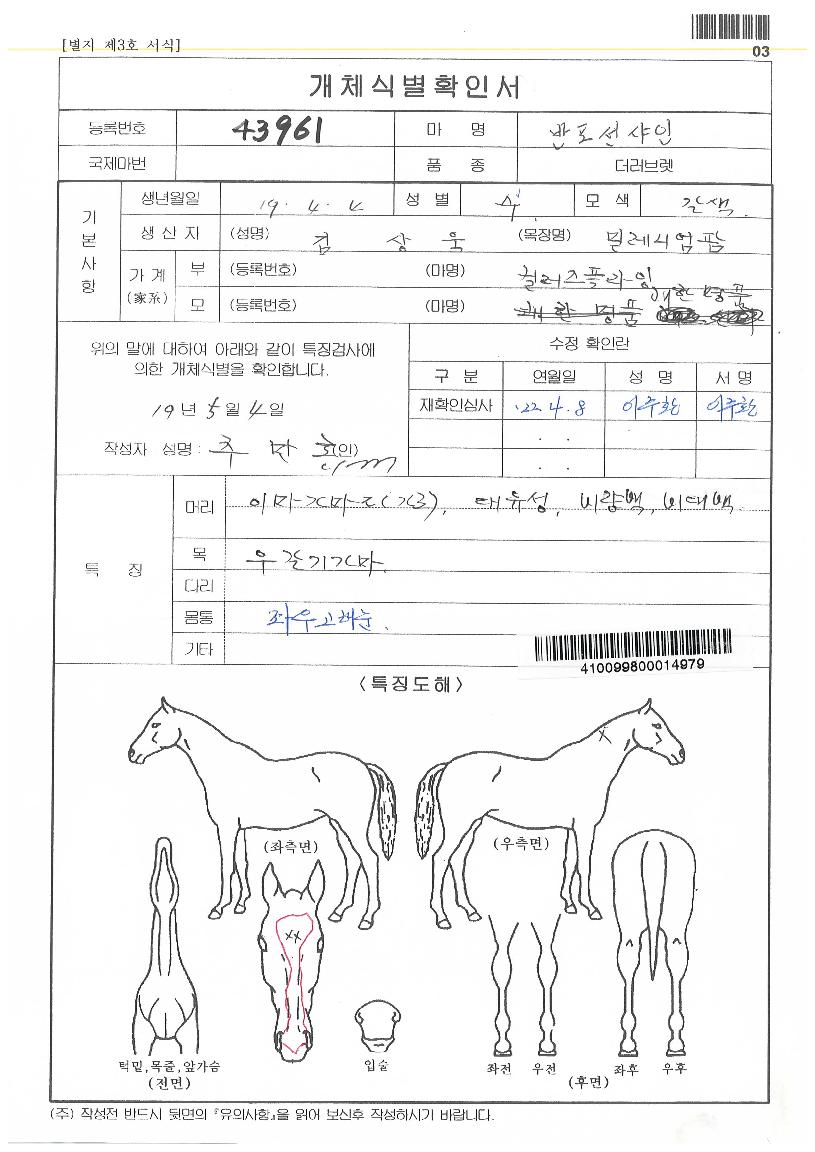 [별지 제3호 서식]
03
개체식별확인서
등록번호 43961 마 명 반포선샤인
국제마번 품 종 더러브렛
기본사항
생년월일 19. 4. 4 성 별 수 모 색 갈색.
생 산 자 (성명) 김 상 욱 (목장명) 밀레니엄팜
가 계 (家系) 부 (등록번호) (마명) 컬러즈플라잉
모 (등록번호) (마명) 쾌한명품
위의 말에 대하여 아래와 같이 특징검사에
의한 개체식별을 확인합니다.
19 년 5 월 4 일
작성자 성명 : 주 만 (인)
수정 확인란
구 분 연월일 성 명 서 명
재확인심사 '22. 4. 8 이주환 이주환
. .
. .
특 징
머리 이마가마2(가로), 대유성, 비량백, 비대백.
목 우갈기가마.
다리
몸통 좌우고배눈.
기타
410099800014979
<특징도해>
(좌측면)
(우측면)
턱밑,목줄,앞가슴
(전면)
입술
좌전 우전
(후면)
좌후 우후
(주) 작성전 반드시 뒷면의 『유의사항』을 읽어 보신후 작성하시기 바랍니다.